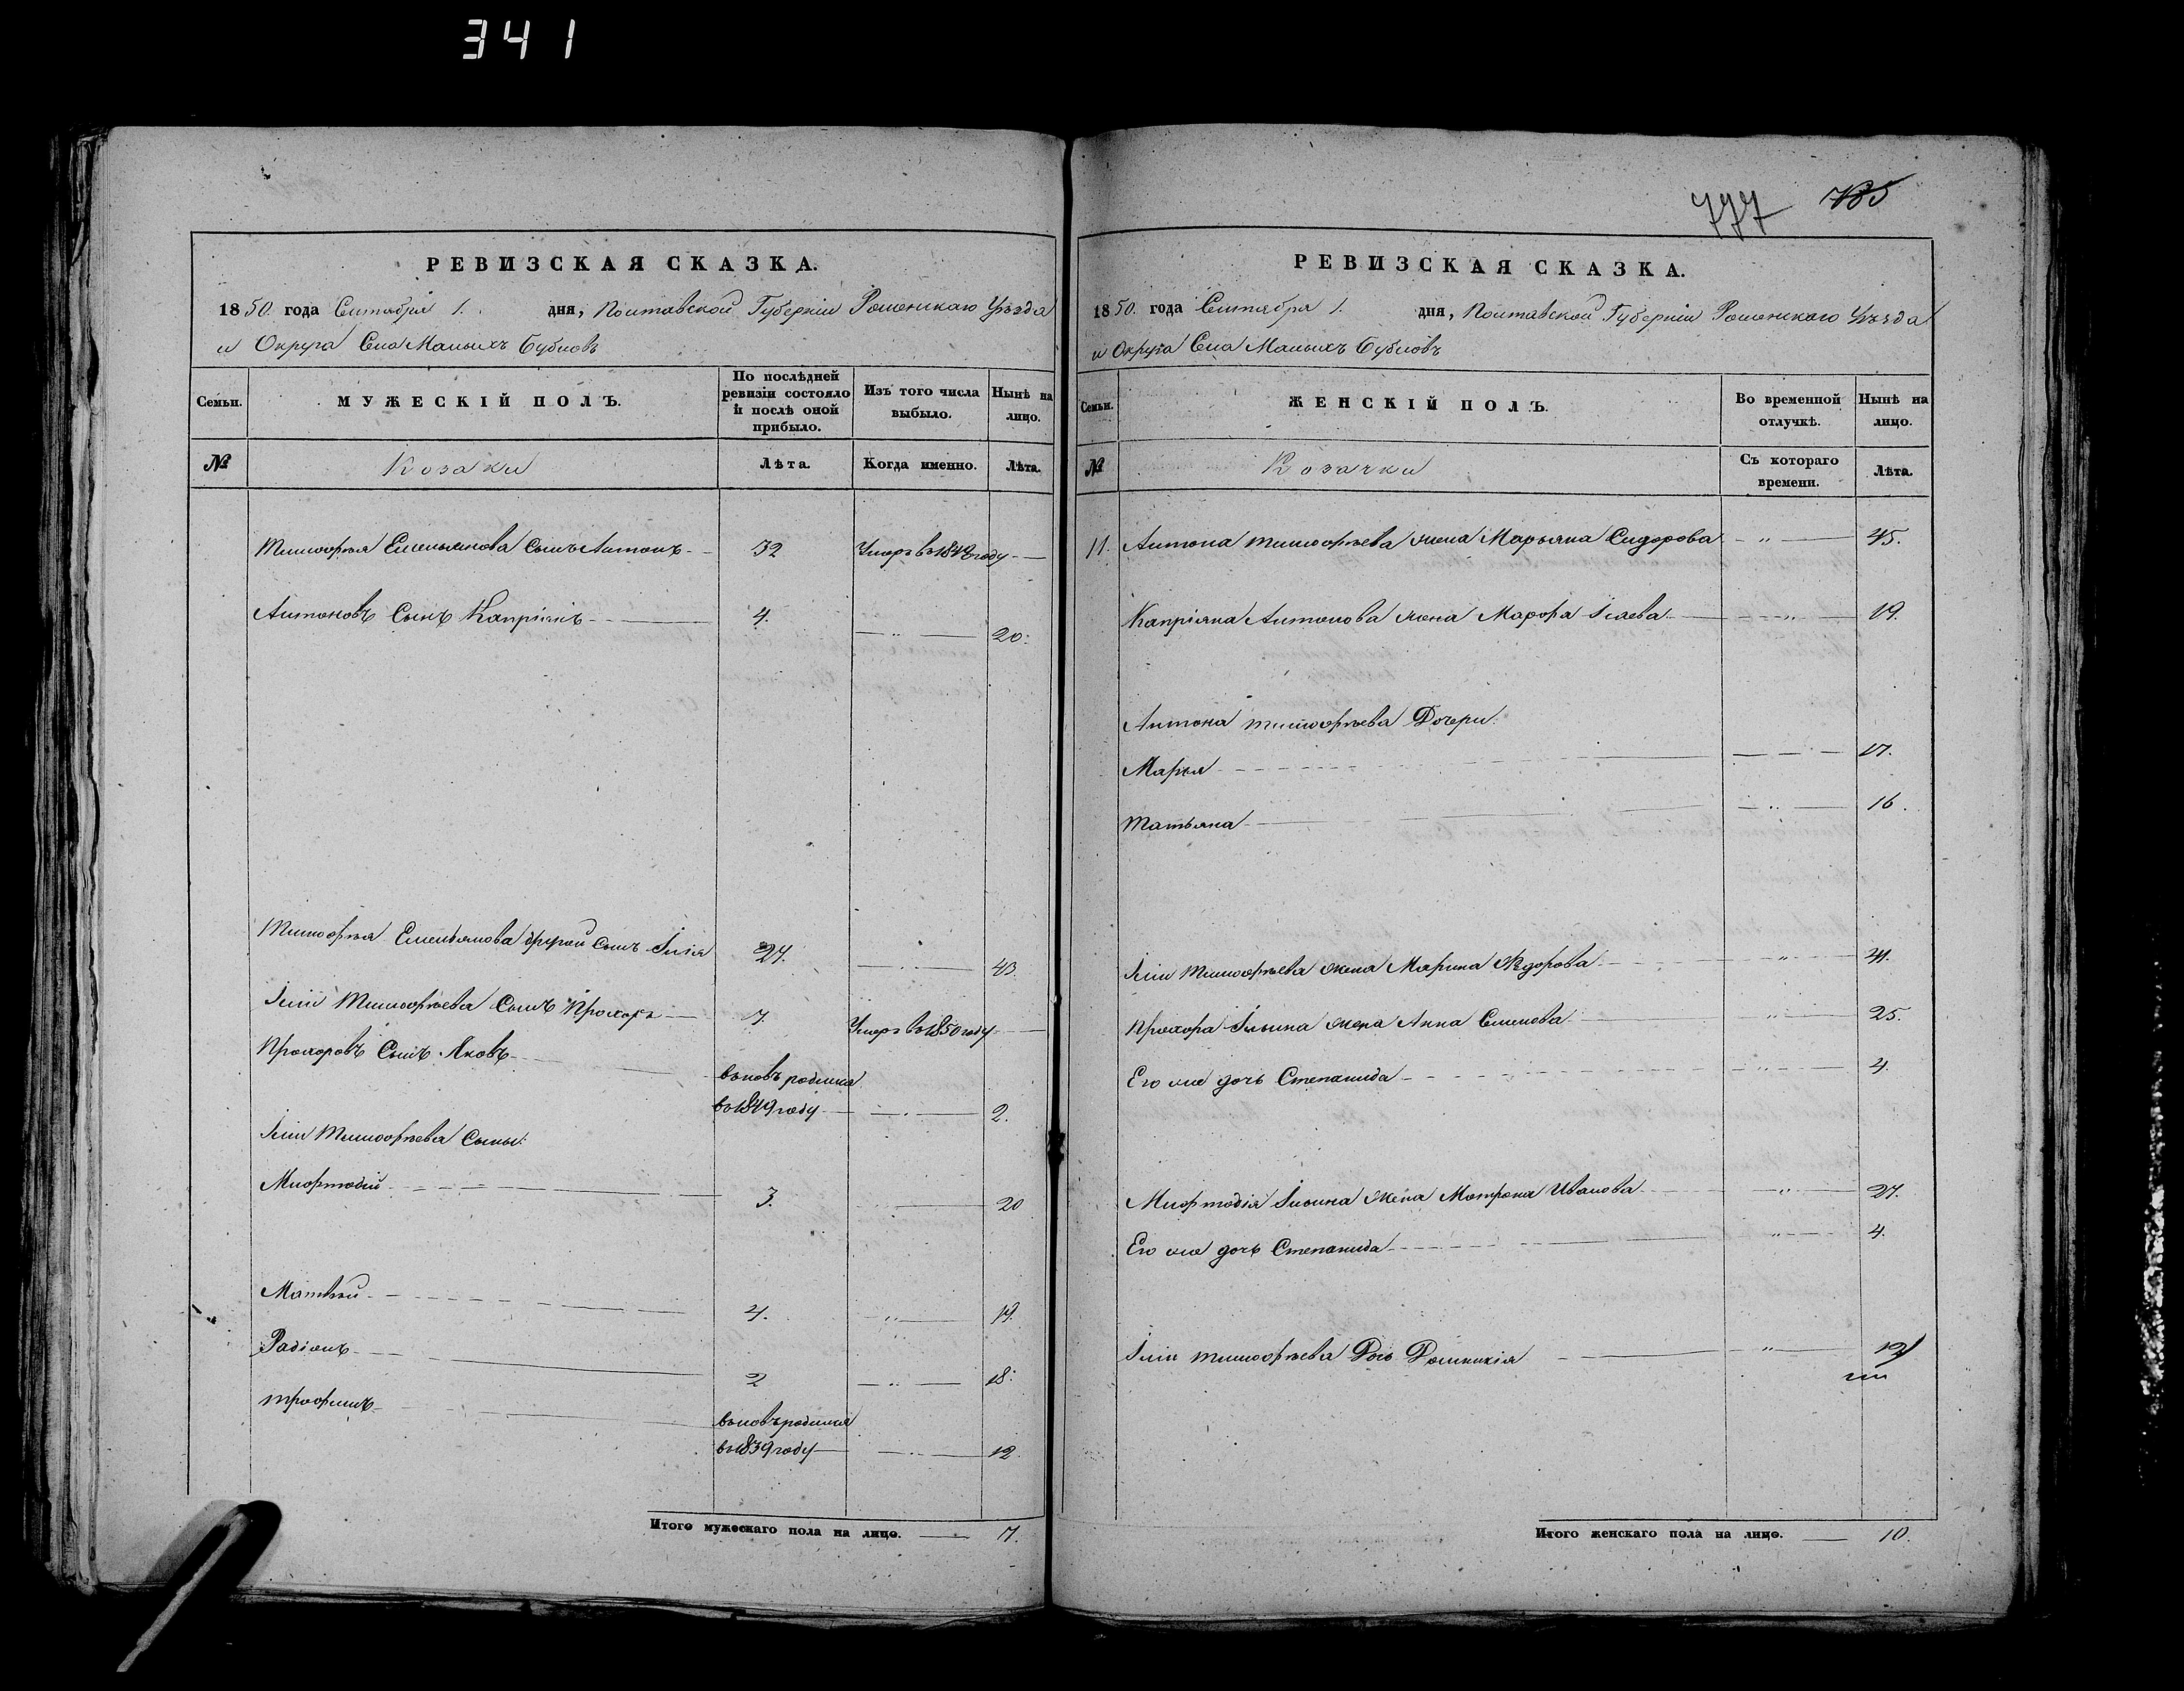 341
РЕВИЗСКАЯ СКАЗКА.
1850. года Сентября 1. дня, Полтавской Губерніи Роменскаго Уѣзда
и Округа Села Малыхъ Бубновъ
Семьи. МУЖЕСКІЙ ПОЛЪ. По послѣдней ревизіи состояло и послѣ оной прибыло. Изъ того числа выбыло. Нынѣ на лицо.
№ Козаки Лѣта. Когда именно. Лѣта.
Тимофея Емельянова сынъ Антонъ 32 Умеръ въ 1842 году
Антоновъ Сынъ Капріянъ 4. 20.
Тимофея Емельянова другой сынъ Ілія 27. 43.
Іліи Тимофѣева Сынъ Прохоръ 7. Умеръ въ 1850 году
Прохоровъ Сынъ Яковъ
вновь родился
въ 1849 году 2.
Іліи Тимофѣева Сыны:
Мифтодій 3. 20
Матвѣй 4. 19.
Радіонъ 2 18.
Трофимъ
вновь родился
въ 1839 году 12
Итого мужескаго пола на лицо. 7.
777 785
РЕВИЗСКАЯ СКАЗКА.
1850. года Сентября 1. дня, Полтавской Губерніи Роменскаго Уѣзда
и Округа Села Малыхъ Бубновъ
Семьи. ЖЕНСКІЙ ПОЛЪ. Во временной отлучкѣ. Нынѣ на лицо.
№ Козачки Съ котораго времени. Лѣта.
11. Антона Тимофѣева жена Марьяна Сидорова 45.
Капріяна Антонова жена Марфа Ісаева 19.
Антона Тимофѣева Дочери:
Марья 17.
Татьяна 16.
Іліи Тимофѣева жена Марина Ѳедорова 41.
Прохора Ільина жена Анна Семенова 25.
Его же дочь Степанида 4.
Мифтодія Ільина жена Мотрона Иванова 27.
Его же дочь Степанида 4.
Іліи Тимофѣева Дочь Домникія 12
Итого женскаго пола на лицо. 10.